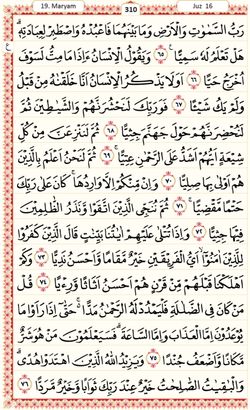 19. Maryam 310 Juz 16
رَبُّ السَّمٰوٰتِ وَالْاَرْضِ وَمَا بَيْنَهُمَا فَاعْبُدْهُ وَاصْطَبِرْ لِعِبَادَتِهٖۗ
هَلْ تَعْلَمُ لَهٗ سَمِيًّا ࣖ ٦٥ وَيَقُوْلُ الْاِنْسَانُ ءَاِذَا مَا مِتُّ لَسَوْفَ
اُخْرَجُ حَيًّا ٦٦ اَوَلَا يَذْكُرُ الْاِنْسَانُ اَنَّا خَلَقْنٰهُ مِنْ قَبْلُ
وَلَمْ يَكُ شَيْـًٔا ٦٧ فَوَرَبِّكَ لَنَحْشُرَنَّهُمْ وَالشَّيٰطِيْنَ ثُمَّ
لَنُحْضِرَنَّهُمْ حَوْلَ جَهَنَّمَ جِثِيًّا ٦٨ ثُمَّ لَنَنْزِعَنَّ مِنْ كُلِّ
شِيْعَةٍ اَيُّهُمْ اَشَدُّ عَلَى الرَّحْمٰنِ عِتِيًّا ٦٩ ثُمَّ لَنَحْنُ اَعْلَمُ بِالَّذِيْنَ
هُمْ اَوْلٰى بِهَا صِلِيًّا ٧٠ وَاِنْ مِّنْكُمْ اِلَّا وَارِدُهَا ۚ كَانَ عَلٰى رَبِّكَ
حَتْمًا مَّقْضِيًّا ٧١ ثُمَّ نُنَجِّى الَّذِيْنَ اتَّقَوْا وَّنَذَرُ الظّٰلِمِيْنَ
فِيْهَا جِثِيًّا ٧٢ وَاِذَا تُتْلٰى عَلَيْهِمْ اٰيٰتُنَا بَيِّنٰتٍ قَالَ الَّذِيْنَ كَفَرُوْا
لِلَّذِيْنَ اٰمَنُوْٓا اَيُّ الْفَرِيْقَيْنِ خَيْرٌ مَّقَامًا وَّاَحْسَنُ نَدِيًّا ٧٣ وَكَمْ
اَهْلَكْنَا قَبْلَهُمْ مِّنْ قَرْنٍ هُمْ اَحْسَنُ اَثَاثًا وَّرِءْيًا ٧٤ قُلْ
مَنْ كَانَ فِى الضَّلٰلَةِ فَلْيَمْدُدْ لَهُ الرَّحْمٰنُ مَدًّا ۚ حَتّٰىٓ اِذَا رَاَوْا مَا
يُوْعَدُوْنَ اِمَّا الْعَذَابَ وَاِمَّا السَّاعَةَ ۗ فَسَيَعْلَمُوْنَ مَنْ هُوَ شَرٌّ
مَّكَانًا وَّاَضْعَفُ جُنْدًا ٧٥ وَيَزِيْدُ اللّٰهُ الَّذِيْنَ اهْتَدَوْا هُدًىۗ
وَالْبٰقِيٰتُ الصّٰلِحٰتُ خَيْرٌ عِنْدَ رَبِّكَ ثَوَابًا وَّخَيْرٌ مَّرَدًّا ٧٦